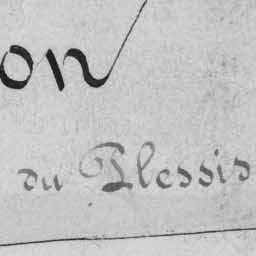 on
du Plessis